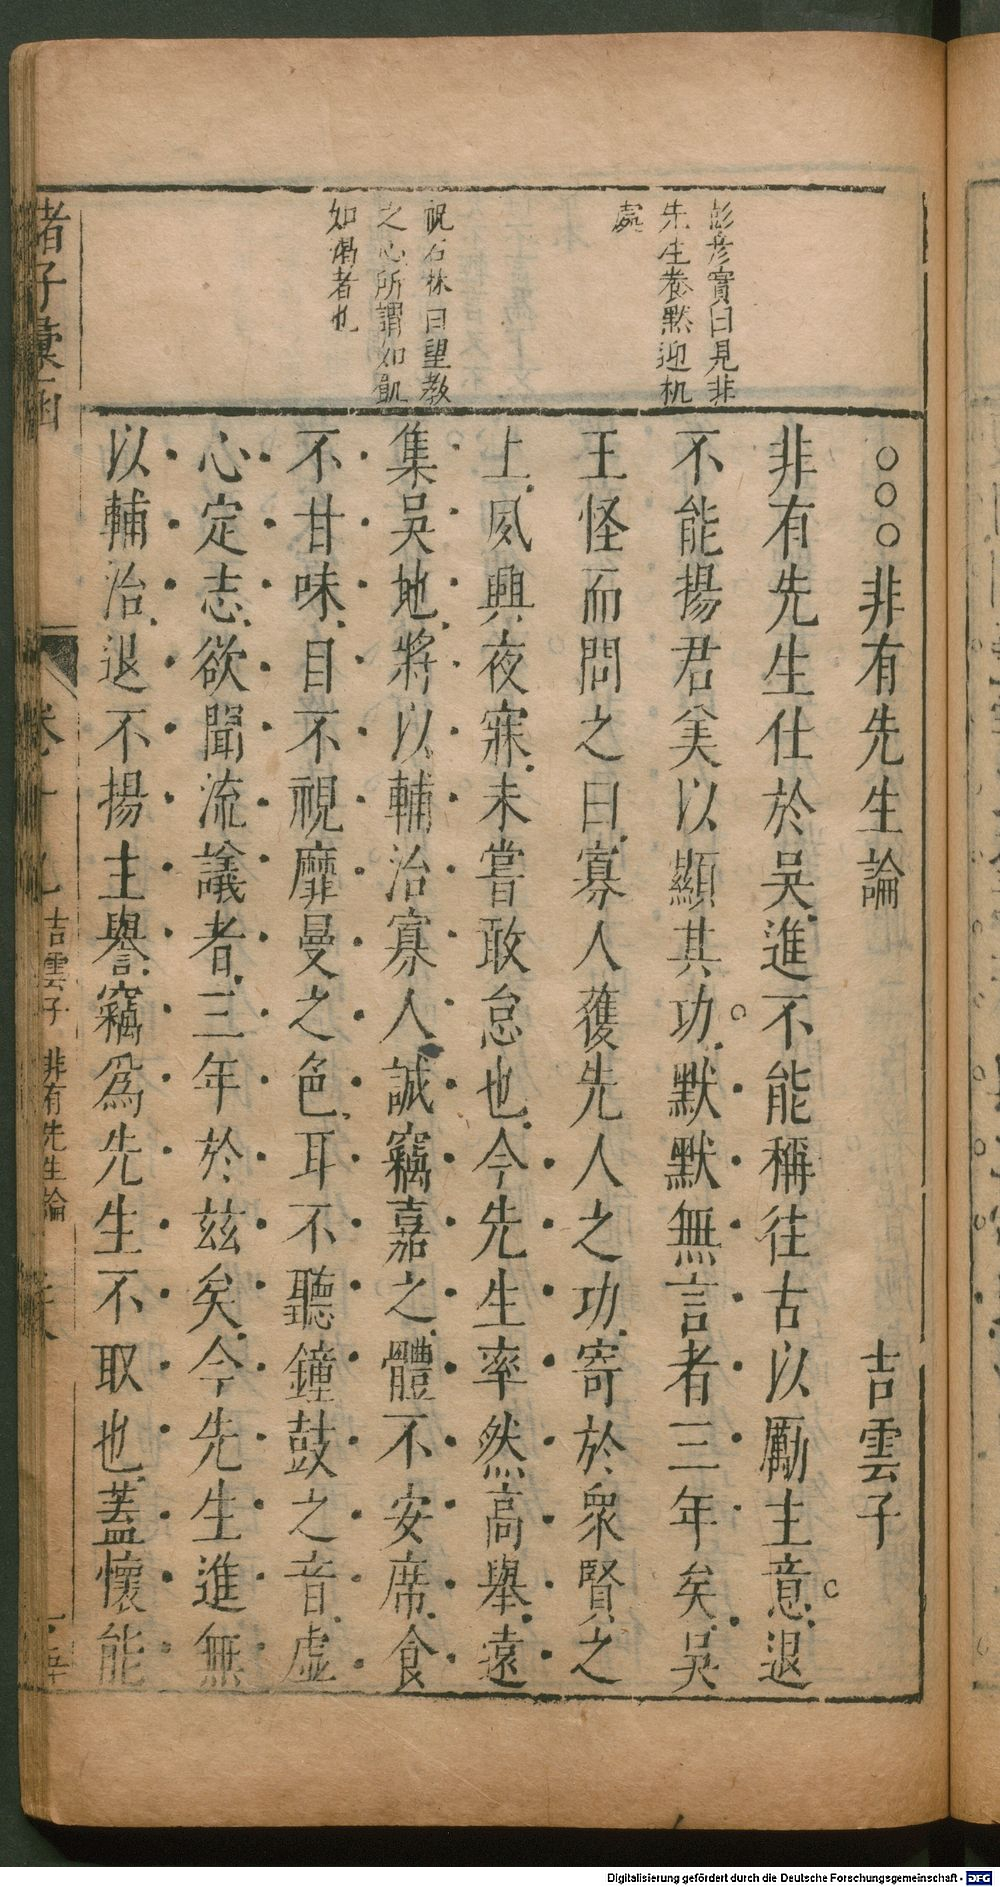 彭彥實曰見非
先生養黙迎机
處
祝石林曰望教
之心所謂如飢
如渴者也
○○○非有先生論
吉雲子
非有先生仕於吳進不能稱往古以勵主意退
不能揚君美以顯其功默默無言者三年矣吳
王怪而問之曰寡人獲先人之功寄於衆賢之
上夙興夜寐未嘗敢怠也今先生率然高舉遠
集吳地將以輔治寡人誠竊嘉之體不安席食
不甘味目不視靡曼之色耳不聽鐘鼓之音虛
心定志欲聞流議者三年於兹矣今先生進無
以輔治退不揚主譽竊爲先生不取也蓋懷能
諸子彙函
卷十九
吉雲子 非有先生論
Digitalisierung gefördert durch die Deutsche Forschungsgemeinschaft - DFG